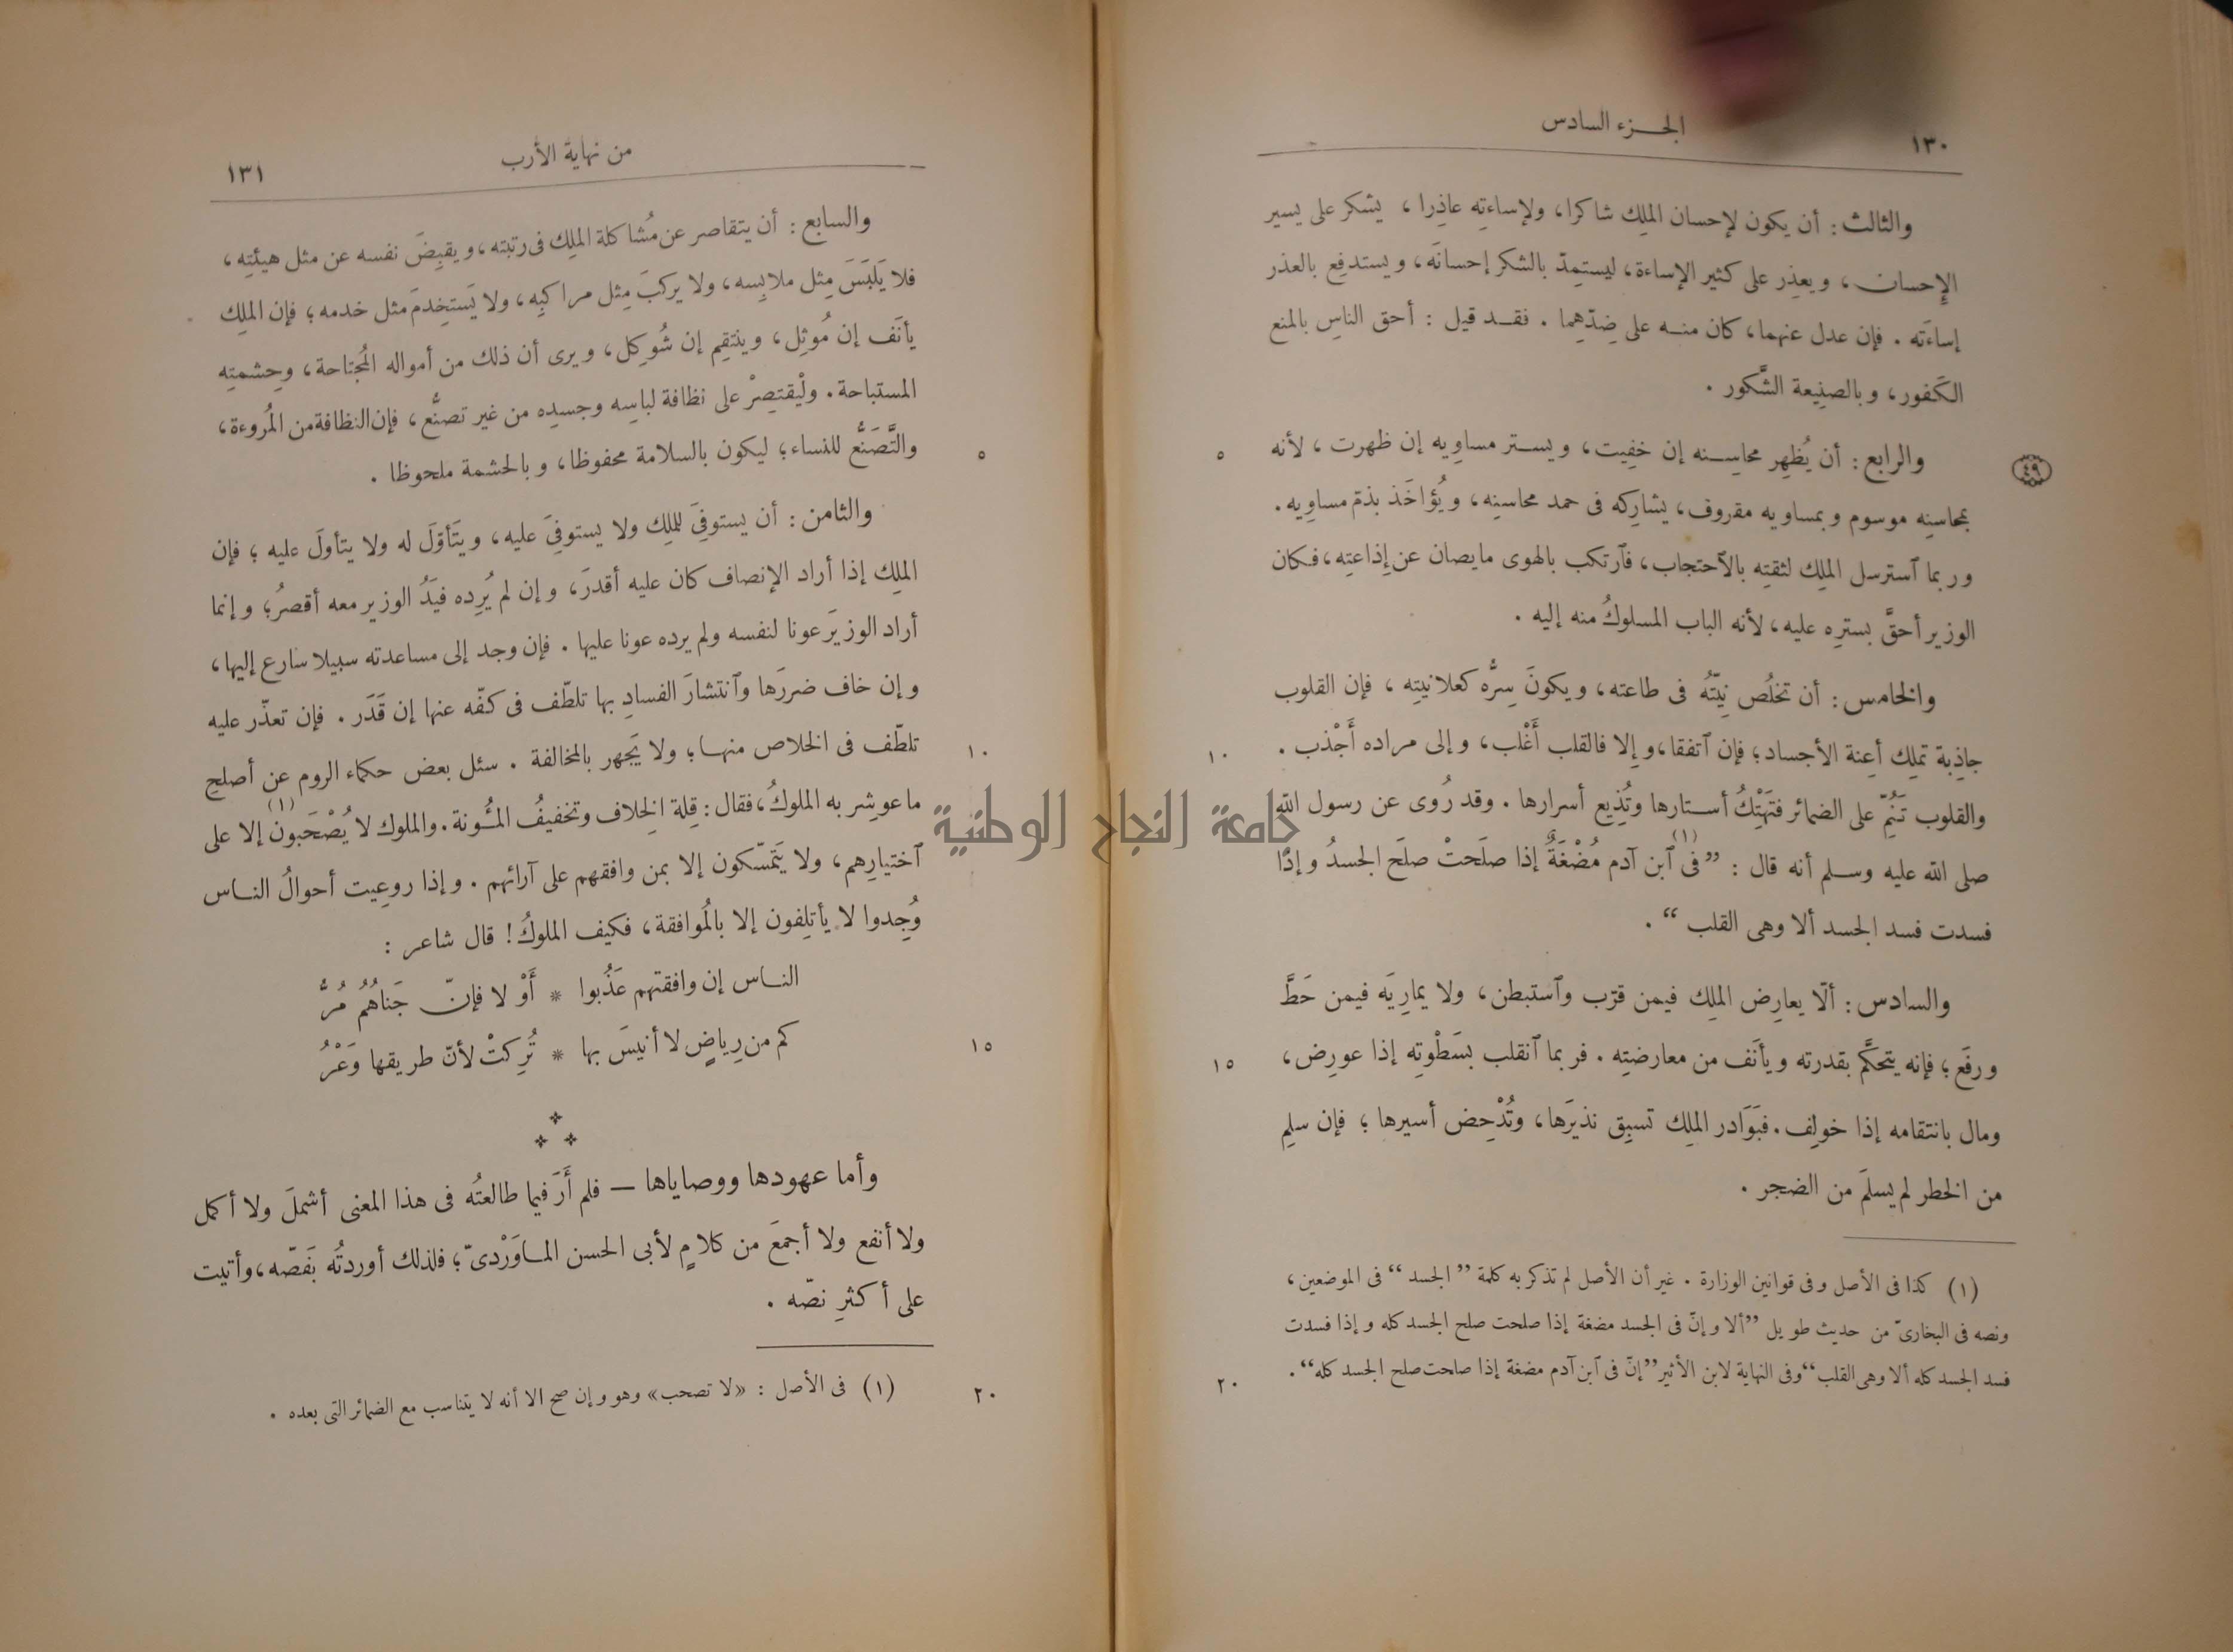 ١٣٠
الجزء السادس
والثالث: أن يكون لإحسان الملِك شاكرا، ولإساءتِه عاذِرا، يشكر على يسير
الإحسان، ويعذِر على كثير الإساءة، ليستمِدّ بالشكر إحسانَه، ويستدفِع بالعذر
إساءَته. فإن عدل عنهما، كان منه على ضِدّهِما. فقد قيل: أحق الناسِ بالمنع
الكَفور، وبالصنِيعة الشَّكور.
والرابع: أن يُظهِر محاسِنه إن خفِيت، ويستر مساوِيه إن ظهرت، لأنه
٥
٤٩
بمحاسنِه موسوم وبمساويه مقروف، يشارِكه فى حمد محاسنِه، ويُؤاخَذ بذمّ مساوِيه.
وربما آسترسل الملِك لثقتِه بالآحتجاب، فآرتكب بالهوى ما يصان عن إذاعتِه، فكان
الوزير أحقَّ بسترِه عليه، لأنه الباب المسلوكُ منه إليه.
والخامس: أن تخلُص نِيّتُه فى طاعته، ويكونَ سِرُّه كعلانيتِه، فإن القلوب
جاذِبة تملِك أعِنة الأجساد؛ فإن آتفقا، وإلا فالقلب أَغْلب، وإلى مراده أَجْذب.
١٠
والقلوب تَنُمّ على الضمائر فتَهَتِكُ أستارها وتُذِيع أسرارها. وقد رُوى عن رسول الله
صلى الله عليه وسلم أنه قال: ”فى(١) آبن آدم مُضْغَةٌ إذا صلَحتْ صلَح الجسدُ وإذا
فسدت فسد الجسد ألا وهى القلب“.
والسادس: ألّا يعارِض الملِك فيمن قرّب وآستبطن، ولا يمارِيَه فيمن حَطَّ
ورفَع؛ فإنه يتحكَّم بقدرته ويأنَف من معارضتِه. فربما آنقلب بسَطْوتِه إذا عورِض،
١٥
ومال بانتقامه إذا خولِف. فبَوَادر الملِك تسبِق نذيرَها، وتُدْحِض أسيرها؛ فإن سلِم
من الخطر لم يسلَم من الضجر.
(١) كذا فى الأصل وفى قوانين الوزارة. غير أن الأصل لم تذكر به كلمة ”الجسد“ فى الموضعين،
ونصه فى البخارىّ من حديث طويل ”ألا وإنّ فى الجسد مضغة إذا صلحت صلح الجسد كله وإذا فسدت
فسد الجسد كله ألا وهى القلب“ وفى النهاية لابن الأثير ”إنّ فى آبن آدم مضغة إذا صلحت صلح الجسد كله“.
٢٠
من نهاية الأرب
١٣١
والسابع: أن يتقاصر عن مُشاكلة الملِك فى رتبته، ويقبِضَ نفسه عن مثل هيئتِه،
فلا يَلبَسَ مِثل ملابِسه، ولا يركبَ مِثل مراكبِه، ولا يَستخِدمَ مثل خدمه؛ فإن الملِك
يأنَف إن مُوثِل، وينتقِم إن شُوكِل، ويرى أن ذلك من أمواله المُجتاحة، وحِشمتِه
المستباحة. ولْيقتصِرْ على نظافة لباسِه وجسدِه من غير تصنُّع، فإن النظافة من المُروءة،
والتَّصَنُّع للنساء؛ ليكون بالسلامة محفوظا، وبالحشمة ملحوظا.
٥
والثامن: أن يستوفِىَ للملِك ولا يستوفِىَ عليه، ويتَأوّلَ له ولا يتأولَ عليه؛ فإن
الملِك إذا أراد الإنصاف كان عليه أقدرَ، وإن لم يُرِده فيَدُ الوزير معه أقصرُ؛ وإنما
أراد الوزيَر عونا لنفسه ولم يرده عونا عليها. فإن وجد إلى مساعدته سبيلا سارع إليها،
وإن خاف ضررَها وآنتشارَ الفسادِ بها تلطّف فى كفّه عنها إن قَدَر. فإن تعذّر عليه
تلطّف فى الخلاص منها؛ ولا يَجهر بالمخالفة. سئل بعض حكماء الروم عن أصلح
١٠
ما عوشِر به الملوكُ، فقال: قِلة الِخلاف وتخفيفُ المئُونة. والملوك لا يُصْحَبون(١) إلا على
آختيارِهم، ولا يَتمسّكون إلا بمن وافقهم على آرائهم. وإذا روعِيت أحوالُ الناس
وُجِدوا لا يأتلِفون إلا بالُموافقة، فكيف الملوكُ! قال شاعر:
الناس إن وافقتهم عَذُبوا * أَوْ لا فإنّ جَناهُمُ مُرُّ
كم من رِياضٍ لا أنيسَ بها * تُرِكتْ لأنّ طريقها وَعْرُ
١٥
وأما عهودها ووصاياها – فلم أَرَ فيما طالعتُه فى هذا المعنى أشملَ ولا أكمل
ولا أنفع ولا أجمعَ من كلامٍ لأبى الحسن الماوَرْدىّ؛ فلذلك أوردتُه بَفصّه، وأتيت
على أكثرِ نصّه.
(١) فى الأصل: «لا تصحب» وهو وإن صح الا أنه لا يتناسب مع الضمائر التى بعده.
٢٠
جامعة النجاح الوطنية